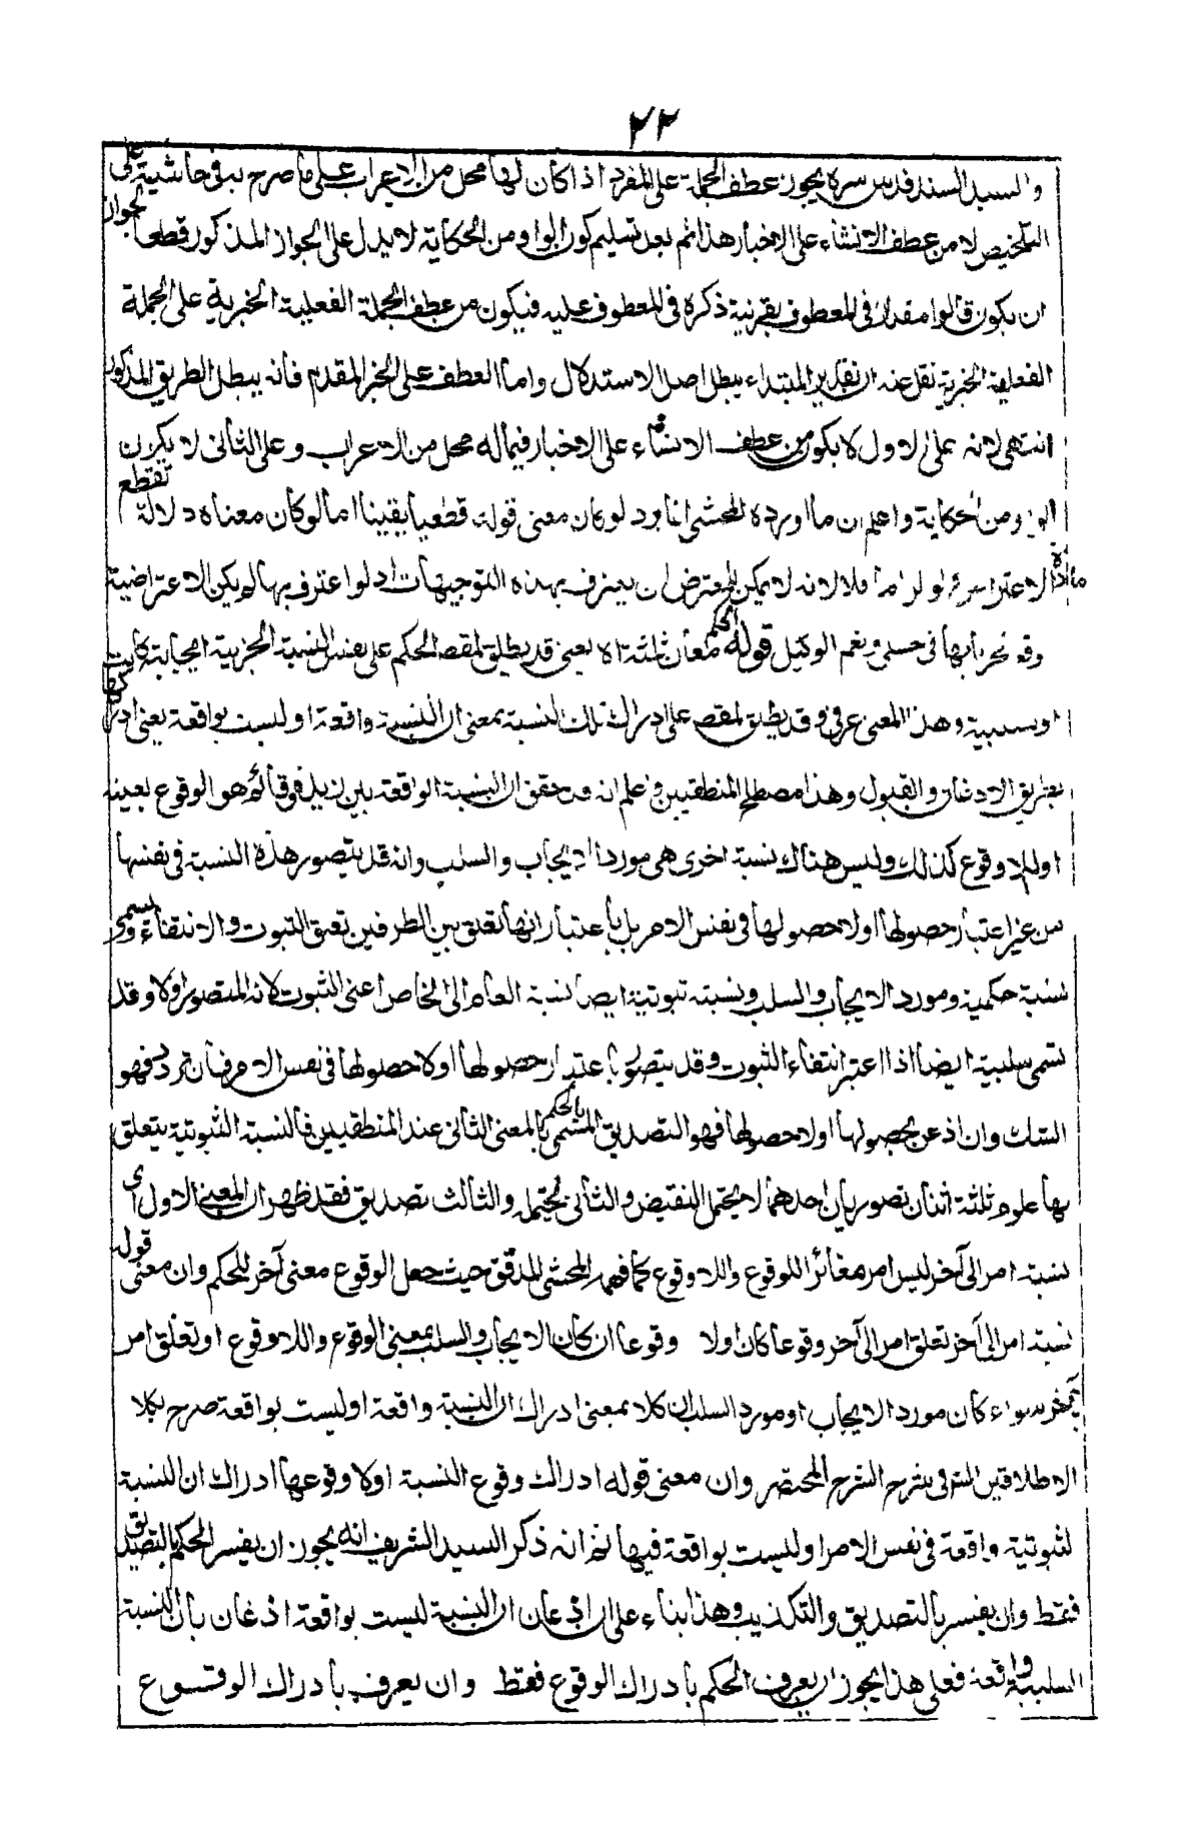 ٢٢
والسيد السند قدس سره يجوز عطف الجملة على المفرد اذا كان لها محل من الاعراب على ما صرح به فى حاشيته على
التلخيص لا من عطف الانشاء على الاخبار هذا ثم بعد تسليم كون الواو من الحكاية لا يدل على الجواز المذكور قطعا لجواز
ان يكون قالوا مقدرا فى المعطوف بقرينة ذكره فى المعطوف عليه فيكون من عطف الجملة الفعلية الخبرية على الجملة
الفعلية الخبرية نقل عنه ان تقدير المبتداء يبطل اصل الاستدلال واما العطف على الخبر المقدم فانه يبطل الطريق المذكور
انتهى لانه على الاول لا يكون من عطف الانشاء على الاخبار فيما له محل من الاعراب وعلى الثانى لا يكون
الواو من الحكاية واعلم ان ما اورده المحشى انما يرد لو كان معنى قوله قطعيا يقينا اما لو كان معناه دلالة تقطع
مادة الاعتراض فلا لانه لا يمكن للمعترض ان يعترف بهذه التوجيهات اذ لو اعترف بها لم يكن الاعتراضية
وقد نحريا بها فى حسبى ونعم الوكيل قوله الحكم معان ثلثة اه يعنى قد يطلق لفظ الحكم على نفس النسبة الخبرية ايجابية كانت
او سلبية وهذا المعنى عرفى وقد يطلق لفظه على ادراك تلك النسبة بمعنى ان النسبة واقعة او ليست بواقعة يعنى ادراكها
بطريق الاذعان والقبول وهذا مصطلح المنطقيين واعلم انه قد حقق ان النسبة الواقعة بين زيد وقائم هو الوقوع بعينه
او اللاوقوع كذلك وليس هناك نسبة اخرى هى مورد الايجاب والسلب وانه قد يتصور هذه النسبة فى نفسها
من غير اعتبار حصولها اولا حصولها فى نفس الامر بل باعتبار انها تعلق بين الطرفين تعلق الثبوت والانتفاء ويسمى
نسبة حكمية ومورد الايجاب والسلب ونسبته ثبوتية ايضا نسبة العام الى الخاص اعنى الثبوت لانه المتصور اولا وقد
تسمى سلبية ايضا اذا اعتبر انتفاء الثبوت وقد يتصور باعتبار حصولها اولا حصولها فى نفس الامر فان تردد فهو
الشك وان اذعن بحصولها اولا حصولها فهو التصديق المسمى بالحكم بالمعنى الثانى عند المنطقيين فالنسبة الثبوتية يتعلق
بها علوم ثلثة اثنان تصوريان احدهما لا يحتمل النقيض والثانى يحتمله والثالث تصديق فقد ظهر ان المعنى الاول اى
نسبة امر الى آخر ليس امر مغائر اللوقوع واللاوقوع كما فهم المحشى المدقق حيث جعل الوقوع معنى آخر للحكم وان معنى قوله
نسبة امر الى آخر تعلق امر الى آخر وقوعا كان اولا وقوعا ان كان الايجاب والسلب بمعنى الوقوع واللاوقوع او تعلق امر
بآخر سواء كان مورد الايجاب او مورد السلب ان كلا بمعنى ادراك ان النسبة واقعة او ليست بواقعة صرح بكلا
الاطلاقين الشرفى شرح الشرح المختصر وان معنى قوله ادراك وقوع النسبة اولا وقوعها ادراك ان النسبة
الثبوتية واقعة فى نفس الامر او ليست بواقعة فيها نعم انه ذكر السيد الشريف انه يجوز ان يفسر الحكم بالتصديق
فقط وان يفسر بالتصديق والتكذيب وهذا بناء على ان اذعان ان النسبة ليست بواقعة اذعان بان النسبة
السلبية واقعة فعلى هذا يجوز ان يعرف الحكم بادراك الوقوع فقط وان يعرف بادراك الوقوع